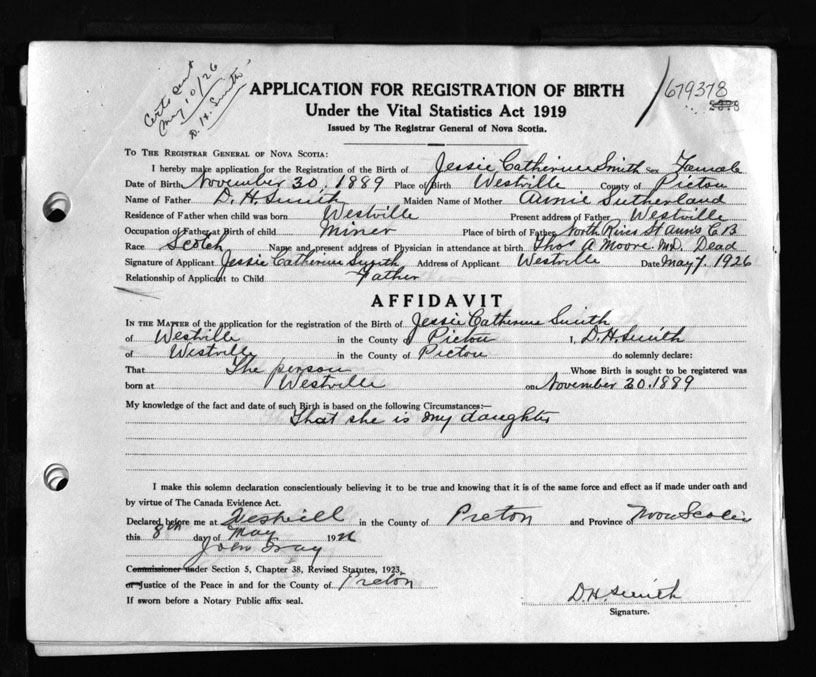 Certs sent
May 10/26
D. H. Smith
679378
APPLICATION FOR REGISTRATION OF BIRTH
Under the Vital Statistics Act 1919
Issued by The Registrar General of Nova Scotia.
To The Registrar General of Nova Scotia:
I hereby make application for the Registration of the Birth of Jessie Catherine Smith Sex Female
Date of Birth November 30, 1889 Place of Birth Westville County of Picton
Name of Father D. H. Smith Maiden Name of Mother Annie Sutherland
Residence of Father when child was born Westville Present address of Father Westville
Occupation of Father at Birth of child Miner Place of birth of Father North River St Anns C B
Race Scotch Name and present address of Physician in attendance at birth Thos A Moore M.D. Dead
Signature of Applicant Jessie Catherine Smith Address of Applicant Westville Date May 7, 1926
Relationship of Applicant to Child Father
AFFIDAVIT
In the Matter of the application for the registration of the Birth of Jessie Catherine Smith
of Westville in the County of Picton I, D. H. Smith
of Westville in the County of Picton do solemnly declare:
That The person Whose Birth is sought to be registered was
born at Westville on November 30. 1889
My knowledge of the fact and date of such Birth is based on the following Circumstances:—
That she is my daughter
I make this solemn declaration conscientiously believing it to be true and knowing that it is of the same force and effect as if made under oath and
by virtue of The Canada Evidence Act.
Declared before me at Westvill in the County of Picton and Province of Nova Scotia
this 8th day of May 1926
John Gray
Commissioner under Section 5, Chapter 38, Revised Statutes, 1923,
or Justice of the Peace in and for the County of Picton
If sworn before a Notary Public affix seal.
D. H. Smith
Signature.